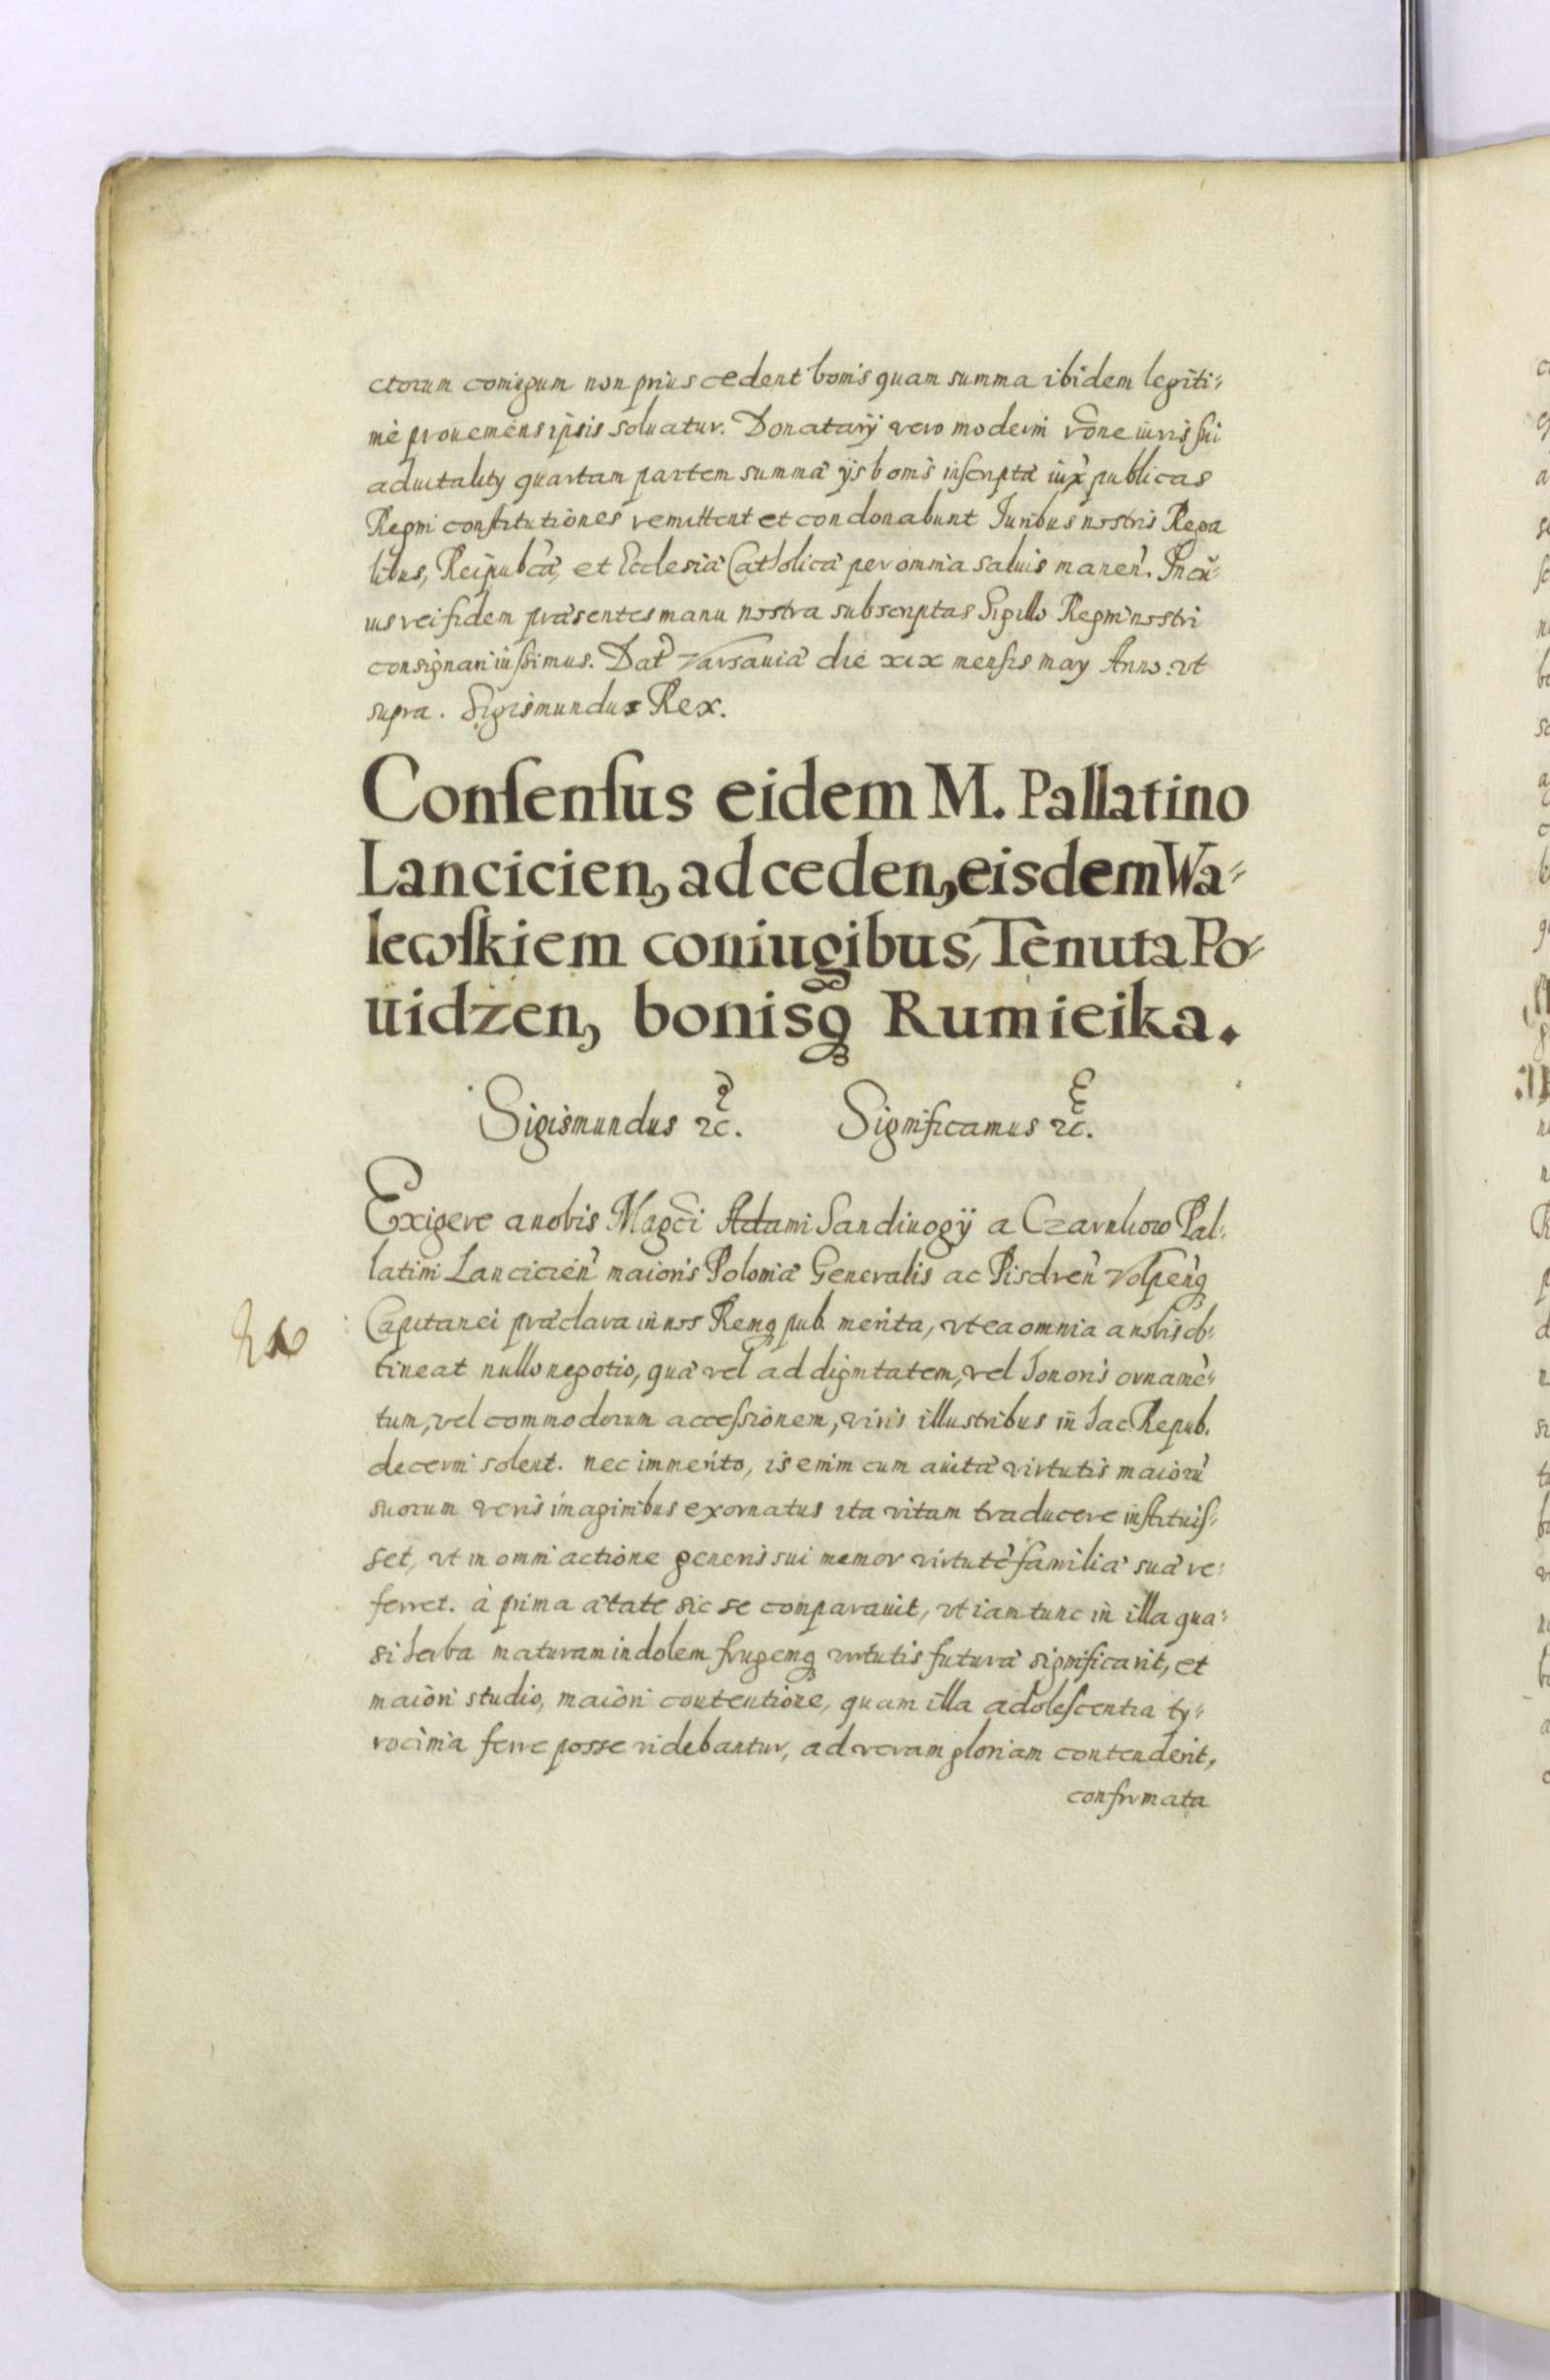 ctorum coniugum non prius cedent bonis quam summa ibidem legiti⸗
mè proueniẽns ipsis soluatur. Donatarij vero moderni rõne iuris sui
aduitality quartam partem summæ ijs bonis inscriptæ iux̀ publicas
Regni constitutiones remittent et condonabunt Juribus nostris Rega
libus, Reipubcæ, et Ecclesiæ Catholicæ per omnia saluis maneñ. In cu⸗
ius rei fidem præsentes manu nostra subscriptas Sigillo Regni nostri
consignari iussimus. Dat̃ Varsauiæ die xix mensis may Anno vt
supra. Sigismundus Rex.
Consensus eidem M. Pallatino
Lancicien, ad ceden, eisdem Wa⸗
lewskiem coniugibus, Tenuta Po⸗
uidzen, bonisq3 Rumieika.
Sigismundus ⁊c̃. Significamus ⁊c̃.
Exigere a nobis Magc̃i Adami Sandiuogÿ a Czarnkow Pal⸗
latini Lancicieñ maioris Poloniæ Generalis ac Pisdreñ Volpeñq3
Capitanei præclara in nos Remq3 pub. merita, vt ea omnia a nobis ob⸗
tineat nullo negotio, quæ vel ad dignitatem, vel honoris ornamẽ⸗
tum, vel commodorum accessionem, viris illustribus in hac Repub.
decerni solent. nec immerito, is enim cum auitæ virtutis maiorũ
suorum veris imaginibus exornatus ita vitam traducere instituis⸗
set, vt in omni actione generis sui memor virtutẽ familiæ suæ re⸗
ferret. à prima ætate sic se comparauit, vt iam tunc in illa qua⸗
si herba maturam indolem frugemq3 virtutis futuræ significarit, et
maiori studio, maiori contentione, quam illa adolescentia ty⸗
rocinia ferre posse videbantur, ad veram gloriam contenderit,
confirmata